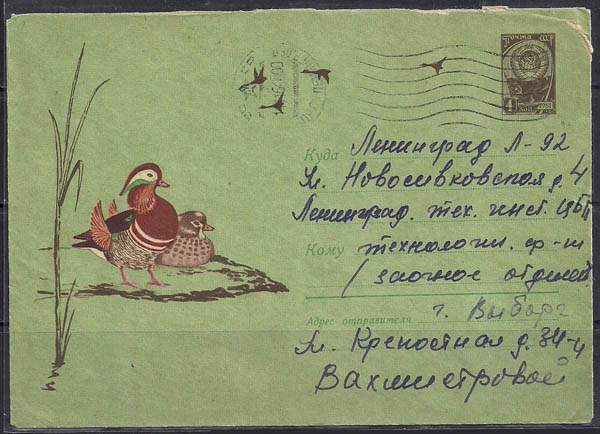 4
Куда Ленинград Л-92
ул. Новосивковская д. 4
Ленинград. тех. инст. ЦБП
Кому технологич. ф-т
/ заочное отделен
г. Выборг
Адрес отправителя
ул. Крепостная д. 34-4
Вахмистровой